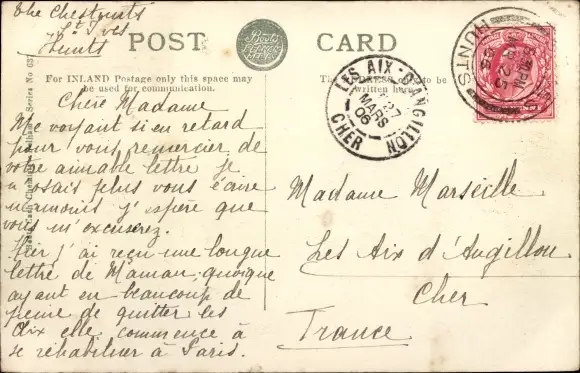 The Chestnuts
St Ives
Hunts
POST CARD
Boots
For INLAND Postage only this space may
be used for communication.
The ADDRESS only to be
written here.
LES AIX-D'ANGILLON
27
MARS
06
CHER
HUNTS
MR 25
Chère Madame
Me voyant si en retard
pour vous remercier de
votre aimable lettre je
n'osais plus vous écrire
néanmoins j'espère que
vous m'excuserez.
Hier j'ai reçu une longue
lettre de Maman, quoique
ayant eu beaucoup de
peine de quitter les
Aix elle commence à
se réhabituer à Paris.
Madame Marseille
Les Aix d'Angillon
Cher
France